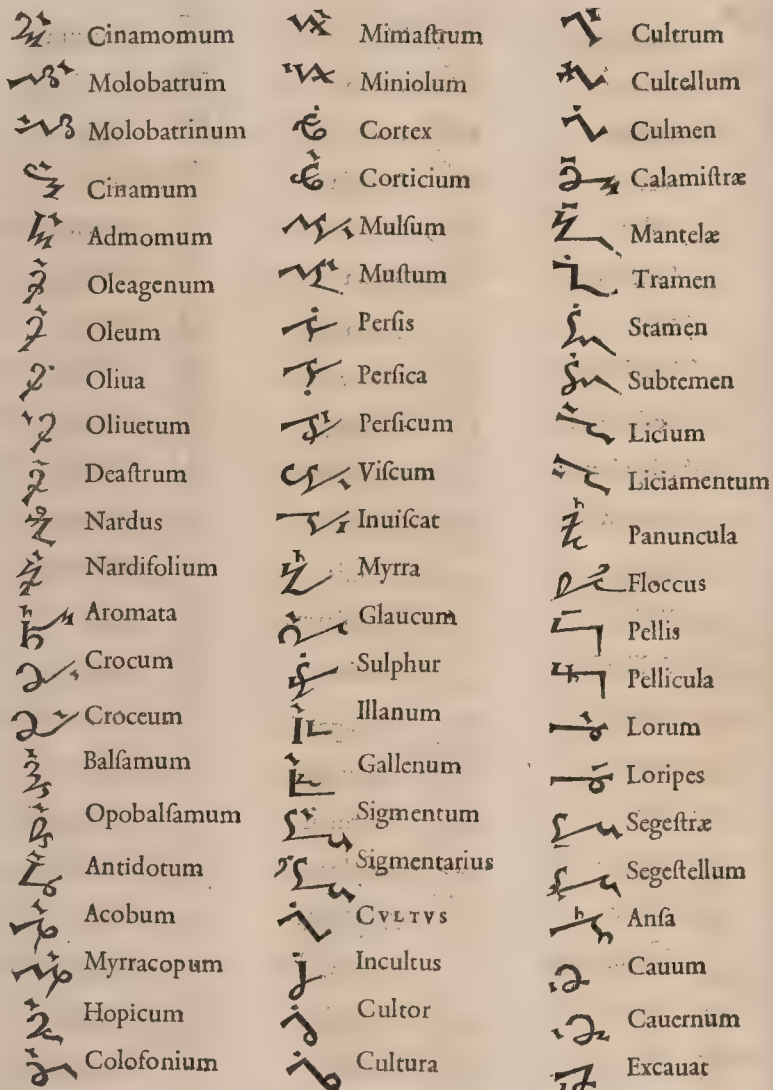 Cinamomum
Molobatrum
Molobatrinum
Cinamum
Admomum
Oleagenum
Oleum
Oliua
Oliuetum
Deaſtrum
Nardus
Nardifolium
Aromata
Crocum
Croceum
Balſamum
Opobalſamum
Antidotum
Acobum
Myrracopum
Hopicum
Colofonium
Mimaſtrum
Miniolum
Cortex
Corticium
Mulſum
Muſtum
Perſis
Perſica
Perſicum
Viſcum
Inuiſcat
Myrra
Glaucum
Sulphur
Illanum
Gallenum
Sigmentum
Sigmentarius
CVLTVS
Incultus
Cultor
Cultura
Cultrum
Cultellum
Culmen
Calamiſtræ
Mantelæ
Tramen
Stamen
Subtemen
Licium
Liciamentum
Panuncula
Floccus
Pellis
Pellicula
Lorum
Loripes
Segeſtræ
Segeſtellum
Anſa
Cauum
Cauernum
Excauat